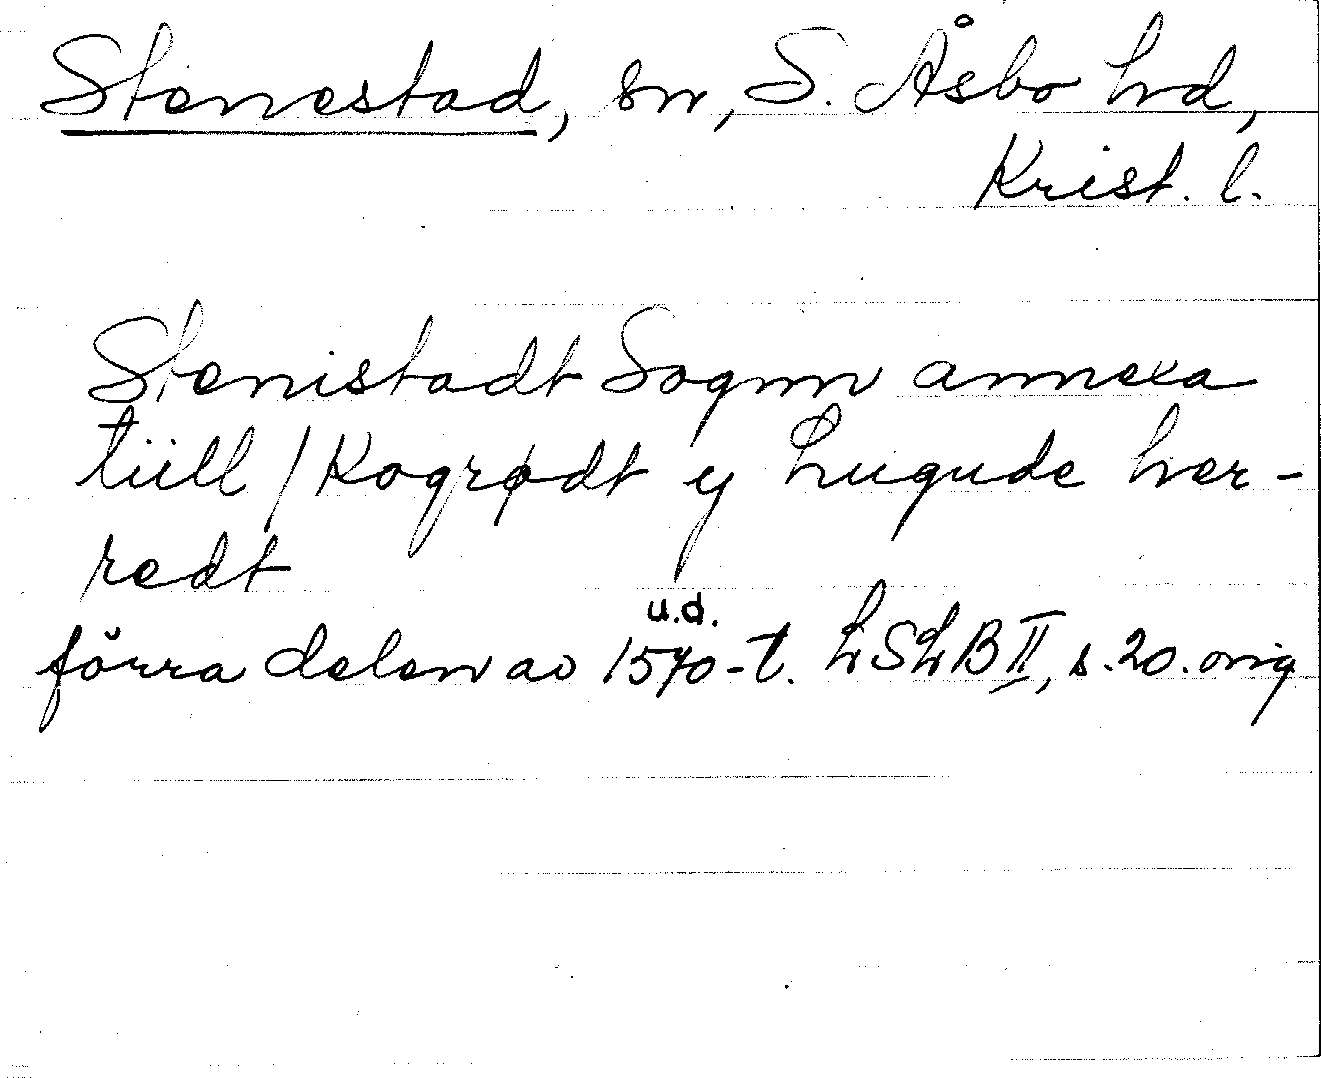 Stenestad, sn, S. Åsbo hd,
Krist. l.
Stenistadt Sognn annexa
tiill / Kogrødt y Lugude her-
redt
u.d.
förra delen av 1570-t. LSLB II, s. 20. orig